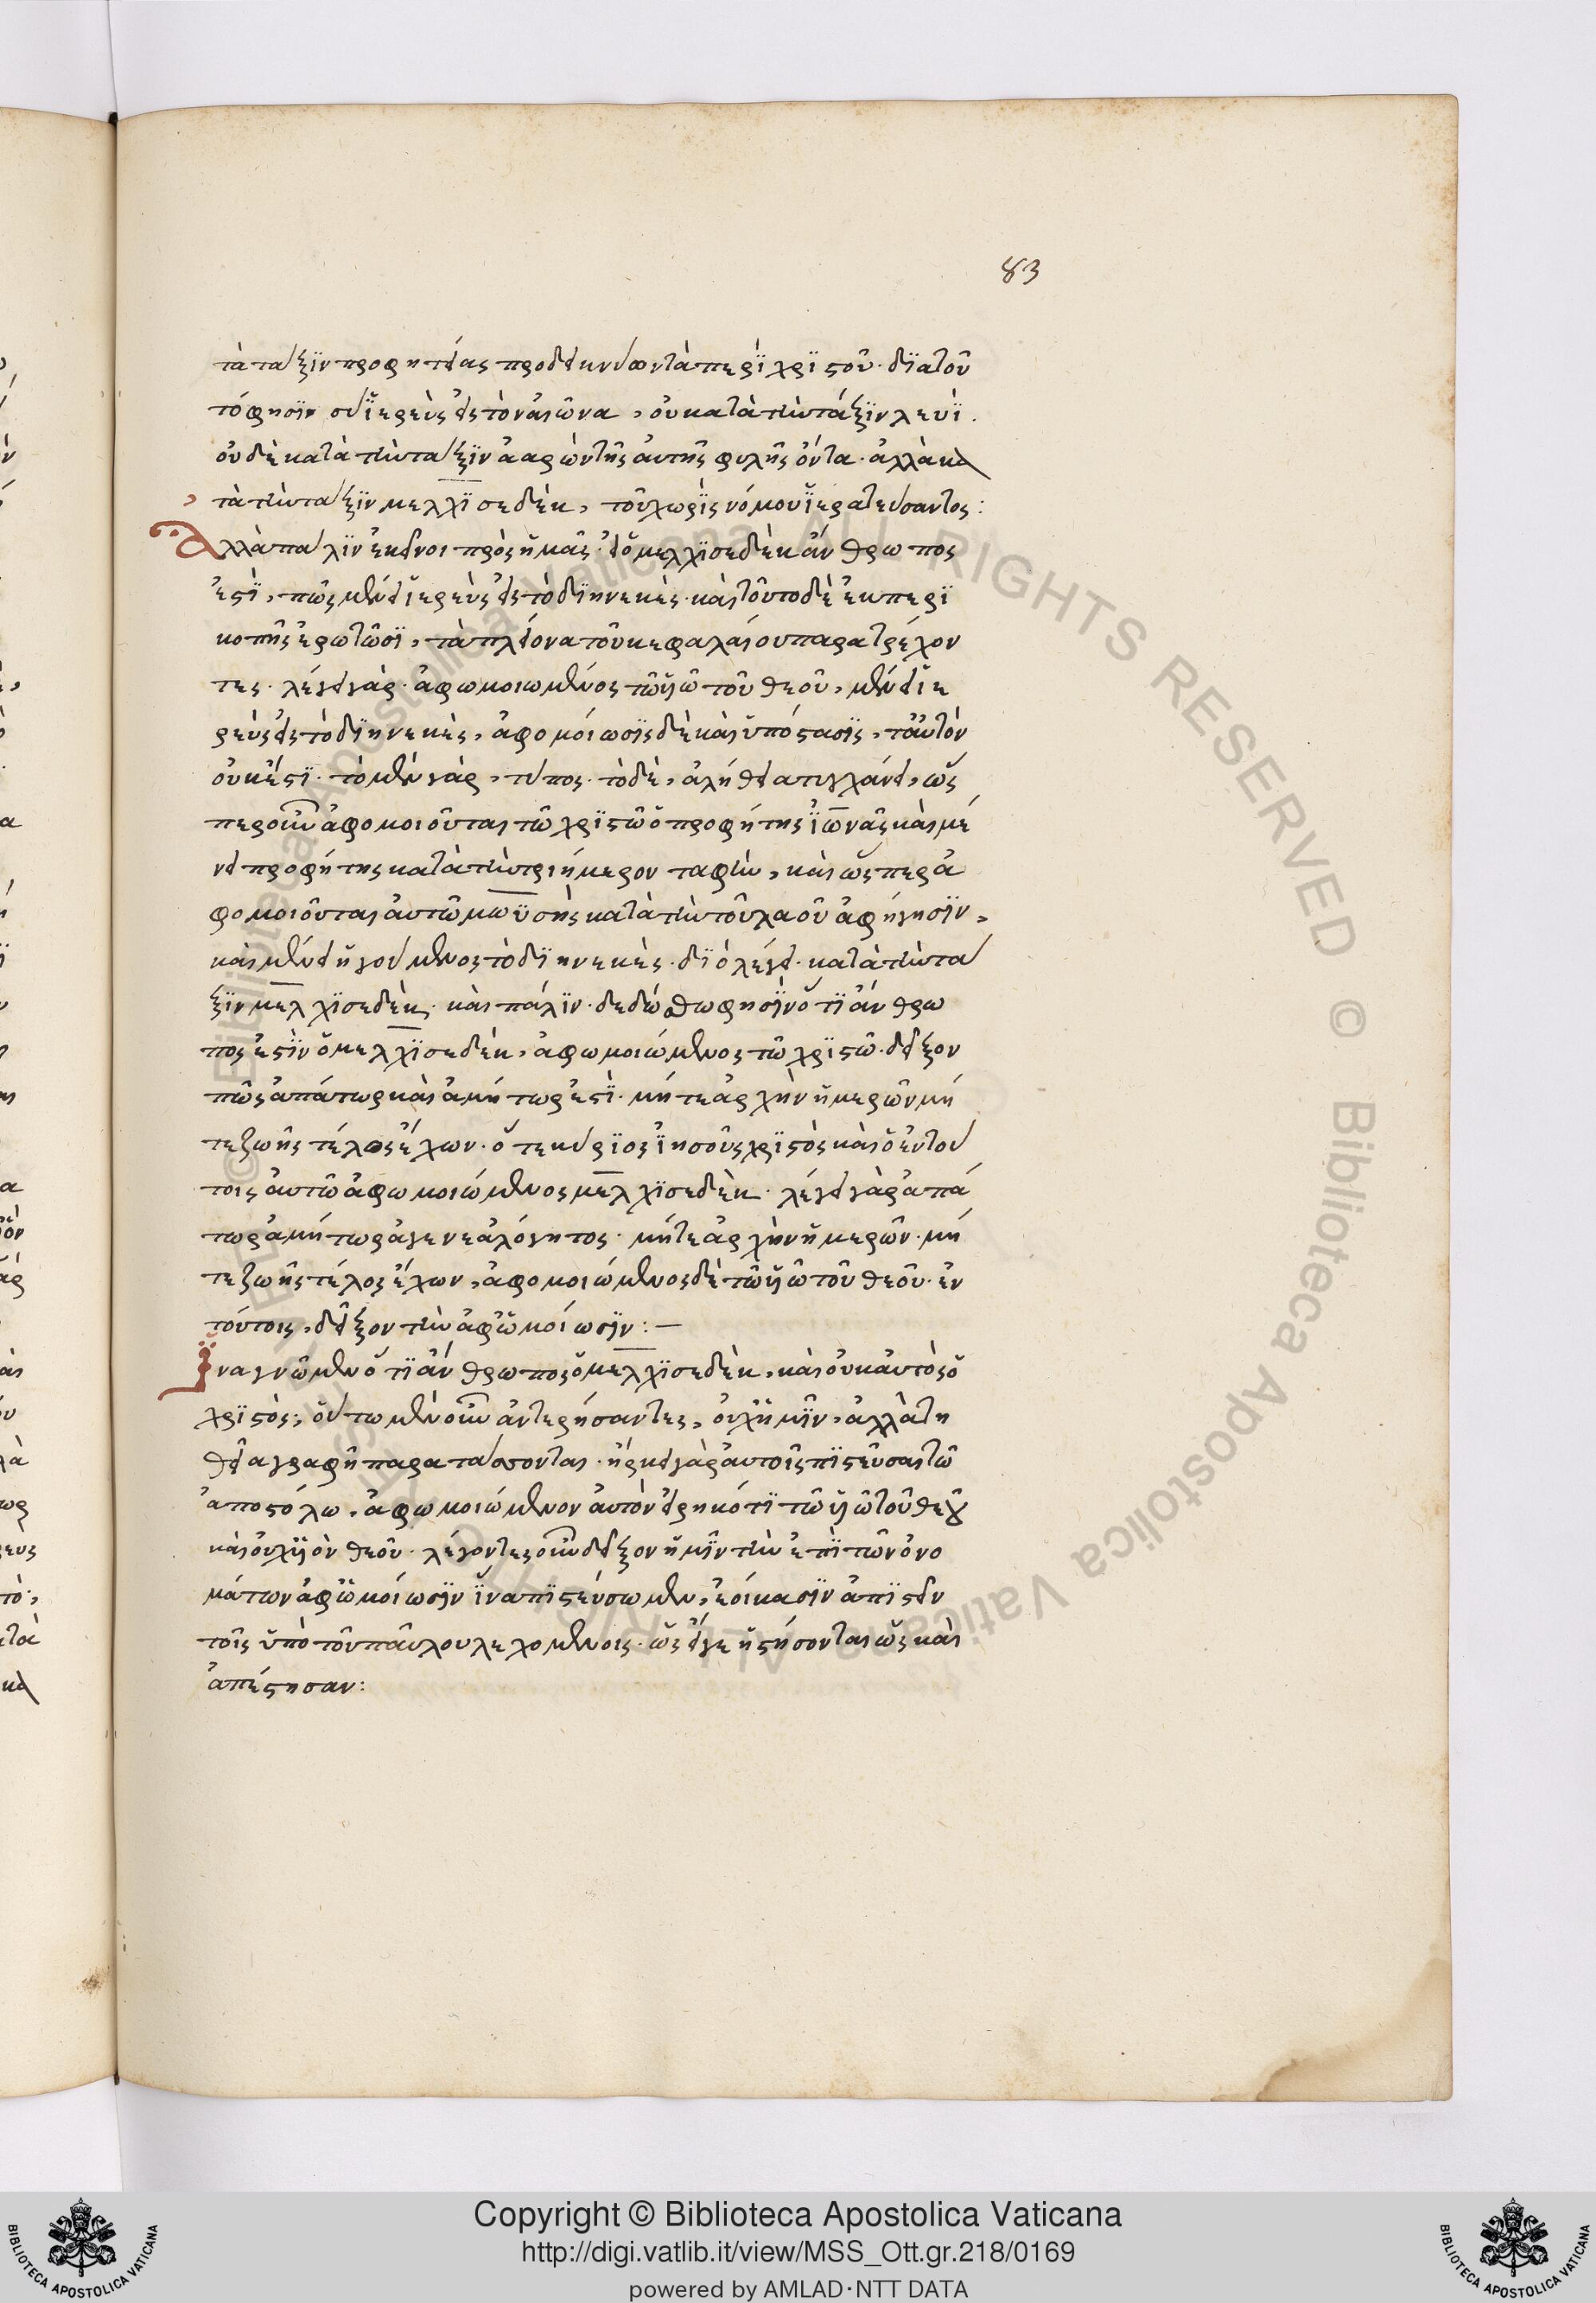 83
τὰ ταξϊν προφητείας προδεικνύοντα περὶ χριστοῦ· διατοῦ
τό φησϊν συ ἱερεὺς εἰς τὸν αἰῶνα, οὐ κατὰ τὴν τάξϊν λευϊ.
οὐδὲ κατὰ τὴν ταξϊν ἀαρὼν τῆς ἀυτῆς φυλῆς ὄντα· ἀλλὰ κα
τὰ τὴν ταξϊν μελχϊσεδὲκ, τοῦ χωρὶς νόμου ἱερατευσαντος:
Ἀλλὰ παλϊν ἐκεῖνοι πρὸς ἡμᾶς· εἰ ὁ μελχϊσεδὲκ ἄνθρωπος
ἐστϊ, πῶς μένει ἱερεὺς εἰς τὸ δϊηνεκὲς· καὶ τοῦτο δὲ ἐκ περϊ
κοπῆς ἐρωτῶσϊ, τὰ πλείονα τοῦ κεφαλαίου παρατρέχον
τες· λέγει γὰρ· ἀφωμοιωμένος τῶ ὑῶ τοῦ θεοῦ, μένει ἱε
ρεὺς εἰς τὸ δϊηνεκὲς, ἀφομοίωσϊς δὲ καὶ ὑπόστασϊς, ταὐτὸν
οὐκ ἔστϊ· τὸ μὲν γὰρ, τυπος· τὸ δὲ, ἀλήθεια τυγχάνει, ὥς
περ οὖν ἀφομοιοῦται τῶ χριστῶ ὁ προφήτης ἰωνᾶς καὶ μέ
νει προφήτης κατὰ τὴν τριήμερον ταφὴν, καὶ ὥσπερ ἀ
φομοιοῦται ἀυτῶ μωϋσῆς κατὰ τὴν τοῦ λαοῦ ἀφήγησϊν,
καὶ μένει ἡγουμενος τὸ δϊηνεκὲς· δϊὸ λέγει· κατὰ τὴν τα
ξϊν μελχϊσεδὲκ· καὶ πάλϊν· δεδώσθω φησϊν ὅτϊ ἄνθρω
πος ἐστϊν ὁ μελχϊσεδὲκ, ἀφωμοιώμενος τῶ χριστῶ· δεῖξον
πῶς ἀπάτωρ καὶ ἀμήτωρ ἐστϊ· μήτε ἀρχὴν ἡμερῶν μή
τε ζωῆς τέλος ἔχων· ὅ τε κυριος ἰησοῦς χριστὸς καὶ ὁ ἐν του
τοις ἀυτῶ ἀφωμοιώμενος μελχϊσεδὲκ· λέγει γὰρ ἀπά
τωρ ἀμήτωρ ἀγενεαλόγητος· μήτε ἀρχὴν ἡμερῶν· μή
τε ζωῆς τέλος ἔχων, ἀφομοιώμενος δὲ τῶ ὑῶ τοῦ θεοῦ· ἐν
τούτοις, δεῖξον τὴν ἀφὡμοίωσϊν:—
Ἵνα γνῶμεν ὅτϊ ἄνθρωπος ὁ μελχϊσεδὲκ, καὶ οὐκ ἀυτὸς ὁ
χριστὸς, οὕτω μὲν οὖν ἀντερήσαντες, οὐχ ἡμῖν, ἀλλὰ τῆ
θεία γραφῆ παρατασσονται· ἤρκει γὰρ ἀυτοῖς πϊστεῦσαι τῶ
ἀποστόλω, ἀφωμοιώμενον ἀυτὸν εἰρηκότϊ τῶ ὑῶ τοῦ θεοῦ
καὶ οὐχ ὑὸν θεοῦ· λέγοντες οὖν δεῖξον ἡμῖν τὴν ἐπὶ τῶν ὀνο
μάτων ἀφὡμοίωσϊν ἵνα πϊστεύσωμεν, ἐοίκασϊν ἀπϊστειν
τοῖς ὑπὸ τοῦ πάυλου λεχομενοις· ὡς εἴγε ἡστήσονται ὡς καὶ
ἀπέστησαν:
Copyright © Biblioteca Apostolica Vaticana
http://digi.vatlib.it/view/MSS_Ott.gr.218/0169
powered by AMLAD·NTT DATA